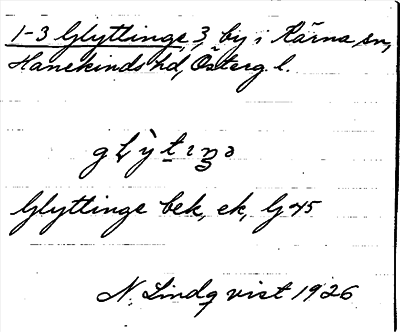 1-3 Glyttinge, 3, by i Kärna sn,
Hanekinds hd, Österg. l.
Glyttinge bek, ek, Gj 45
N. Lindqvist 1926